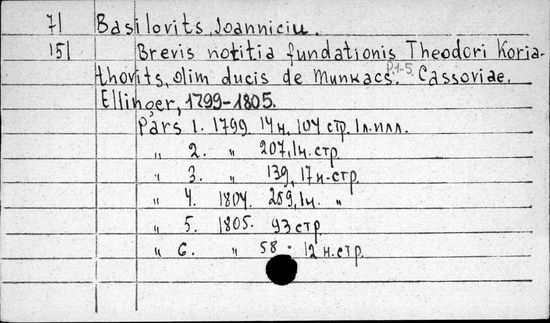 71 Basilovits, Joanniciu.
151 Brevis notitia fundationis Theodori Koria-
thovits, olim ducis de Munkacs. P.1-5. Cassoviae,
Ellinger, 1799-1805.
Pars 1. 1799 14 н, 104 стр. 1 л. илл.
„ 2. „ 207, 1 н. стр
„ 3. „ 139, 17 н. стр.
„ 4. 1804. 259, 1 н. „
„ 5. 1805. 93 стр
„ 6. „ 58 - 12 н. стр.